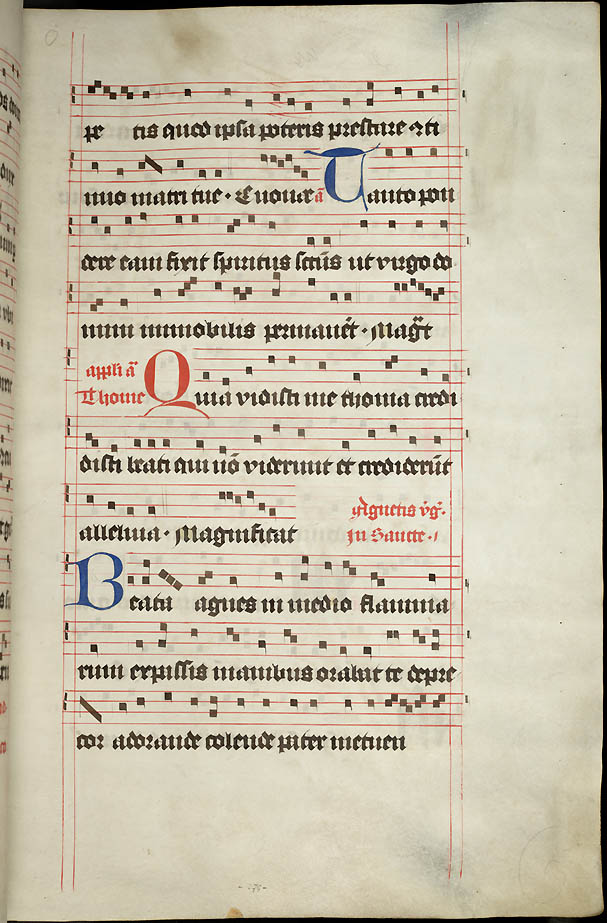 pe tis quod ipsa poteris prestare et ti
mio matri tue · Euouae ā Tanto pon
dere eam fixit spiritus sc̄tus ut virgo do
mini immobilis permanet̄ · Mag̅t
appli ā
Thome Quia vidisti me thoma credi
disti beati qui nō viderunt et credider̄ut
alleluia · Magnificat
Agnetis v̄g̅ ·
In Sancte ·
Beata agnes in medio flamma
rum expassis manibus orabat te depre
cor adorande colende pater metuen